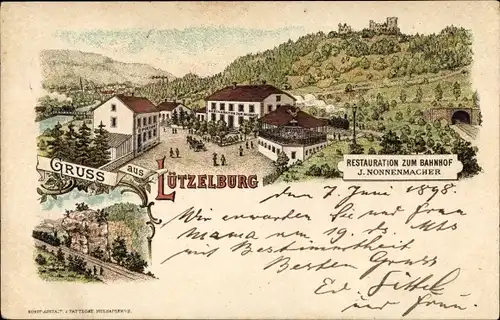 GRUSS aus LÜTZELBURG
RESTAURATION ZUM BAHNHOF
J. NONNENMACHER
den 7. Juni 1898.
Wir erwarten Sie und Frau
Mama am 19. ds. Mts
mit Bestimmtheit
Besten Gruss
Ed.
und Frau.